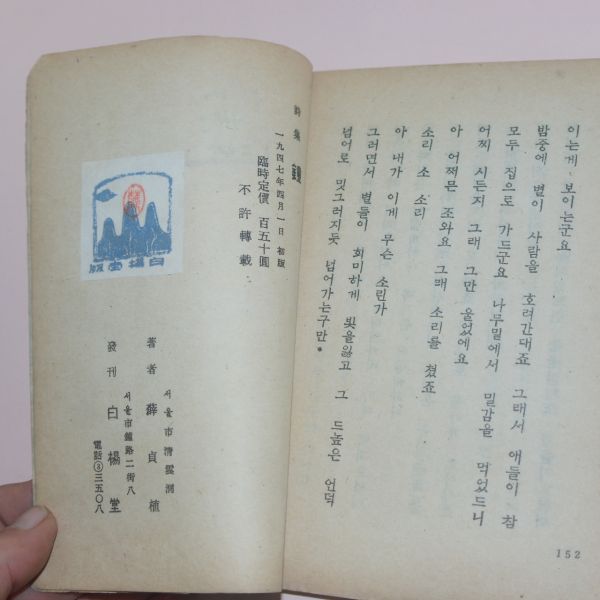 이는게, 보이는군요
밤중에 별이 사람을 호려간대죠 그래서 애들이 참
모두 집으로 가드군요 나무밑에서 밀감을 먹었드니
어찌 시든지 그래 그만 울었에요
아 어쩌믄 조와요 그래 소리를 쳤죠
소리 소 소리
아 내가 이게 무슨 소린가
그러면서 별들이 희미하게 빛을잃고 그 드높은 언덕
넘어로 밋그러지듯 넘어가는구만。
152
詩集
一九四七年四月一日 初版
臨時定價 百五十圓
不許轉載
白楊堂版
서울市淸雲洞
著者 薛貞植
서울市鐘路二街八
發刊 白楊堂
電話③三五〇八